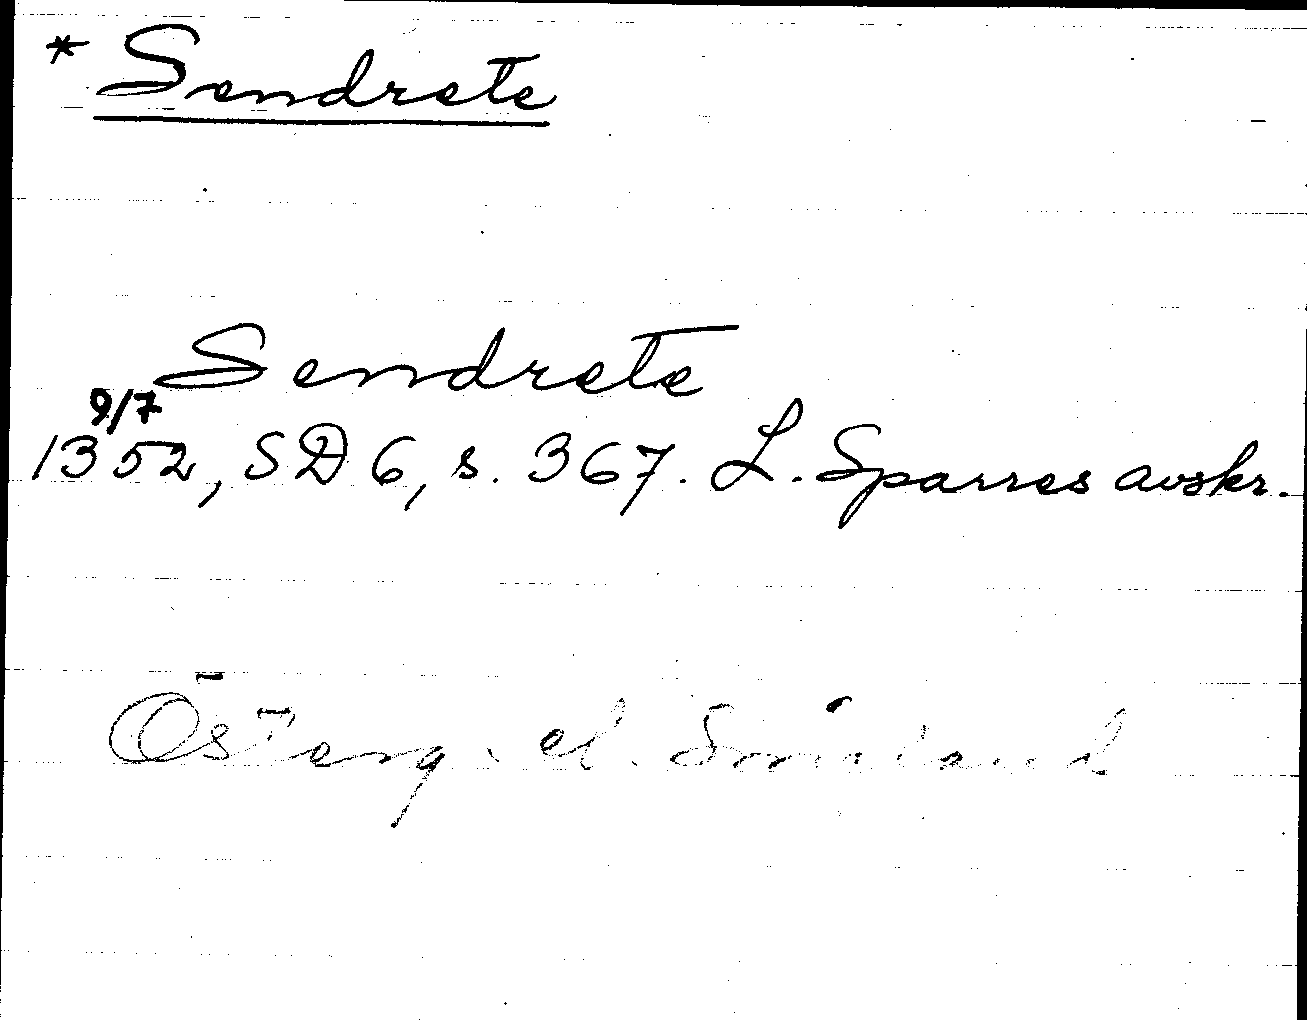 * Sendrete
Sendrete
9/7
1352, SD 6, s. 367. L. Sparres avskr.
Österg. el. Småland